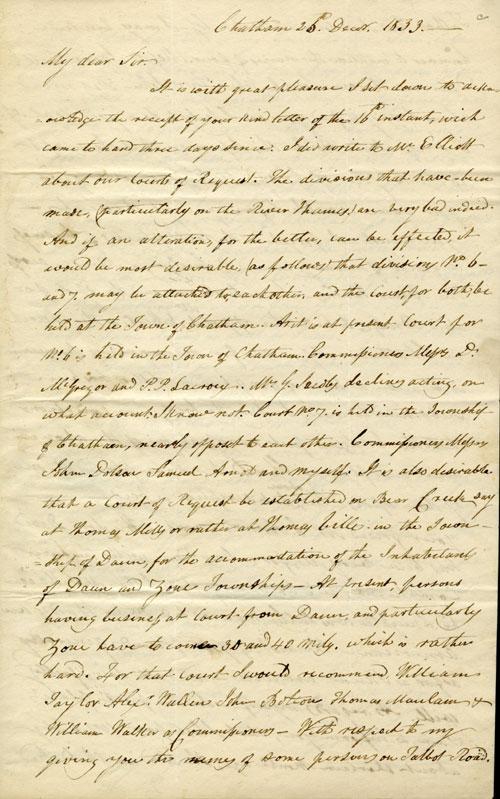 Chatham 26th Decr. 1833.
My dear Sir.
It is with great pleasure I set down to ackn
-owledge the receipt of your kind letter of the 16th instant, wich
came to hand three days since. I did write to Mr. Elliott
about our Courts of Request. The divisions that have been
made, (particularly on the River Thames,) are very bad indeed.
And if an alteration, for the better, can be effected, it
would be most desirable, (as follows) that divisions No. 6
and 7. may be attached to each other, and the court, for both, be
held at the Town of Chatham. As it is at present. Court for
No. 6 is held in the Town of Chatham. Commissioners Messrs D.
McGregor and P.P. Lacroix. Mr. Jacobs declines acting, on
what account I know not. Court No. 7. is held in the Township
of Chatham, nearly opposit to each other. Commissioners Messrs
John Dolsen Samuel Arnold and myself. It is also desirable
that a Court of Request be established on Bear Creek say
at Thomas Mills or rather at Thomas ville in the Town-
-ship of Dawn, for the accommodation of the Inhabitants
of Dawn and Zone Townships - At present persons
having business at Court from Dawn, and particularly
Zone have to come 30 and 40 miles. which is rather
hard. For that Court I would recommend, William
Taylor Alexr. Walker John Thomas &
William Walker as Commissioners - With respect to my
giving you the names of some persons on Talbot Road.